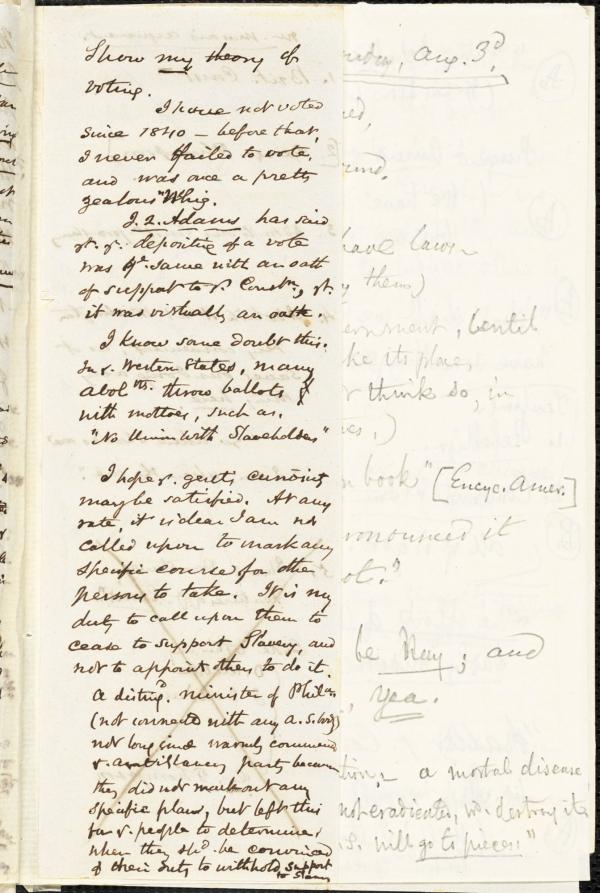 Show my theory of
voting.
I have not voted
since 1840 – before that,
I never failed to vote,
and was once a pretty
zealous "Whig.
J. Q. Adams has said
yt. ye. depositing of a vote
was ye. same with an oath
of support to ye. Constn, yt.
it was virtually an oath.
I know some doubt this.
In ye. Western States, many
abolnts. throw ballots
with mottoes, such as,
"No Union with Slaveholders"
I hope ye. gent's curiosity
may be satisfied. At any
rate, it is clear I am not
called upon to mark any
specific course for other
persons to take. It is my
duty to call upon them to
cease to support Slavery, and
not to appoint others to do it.
A disting'd. minister of Phila
(not connected with any a. s. body)
not long since warmly commend
ye. antislavery party because
they did not mark out any
specific plans, but left this
for ye. people to determine,
when they shd. be convinced
of their duty to withhold support
to Slavery
day, Aug. 3d,
have laws –
them)
ernment, bentil
ke its place,
think so, in
book" [Encyc. Amer.]
ronounced it
ot."
be Nay; and
yea.
tion, – a mortal disease
not eradicates, wd. destroy its
will go to pieces"